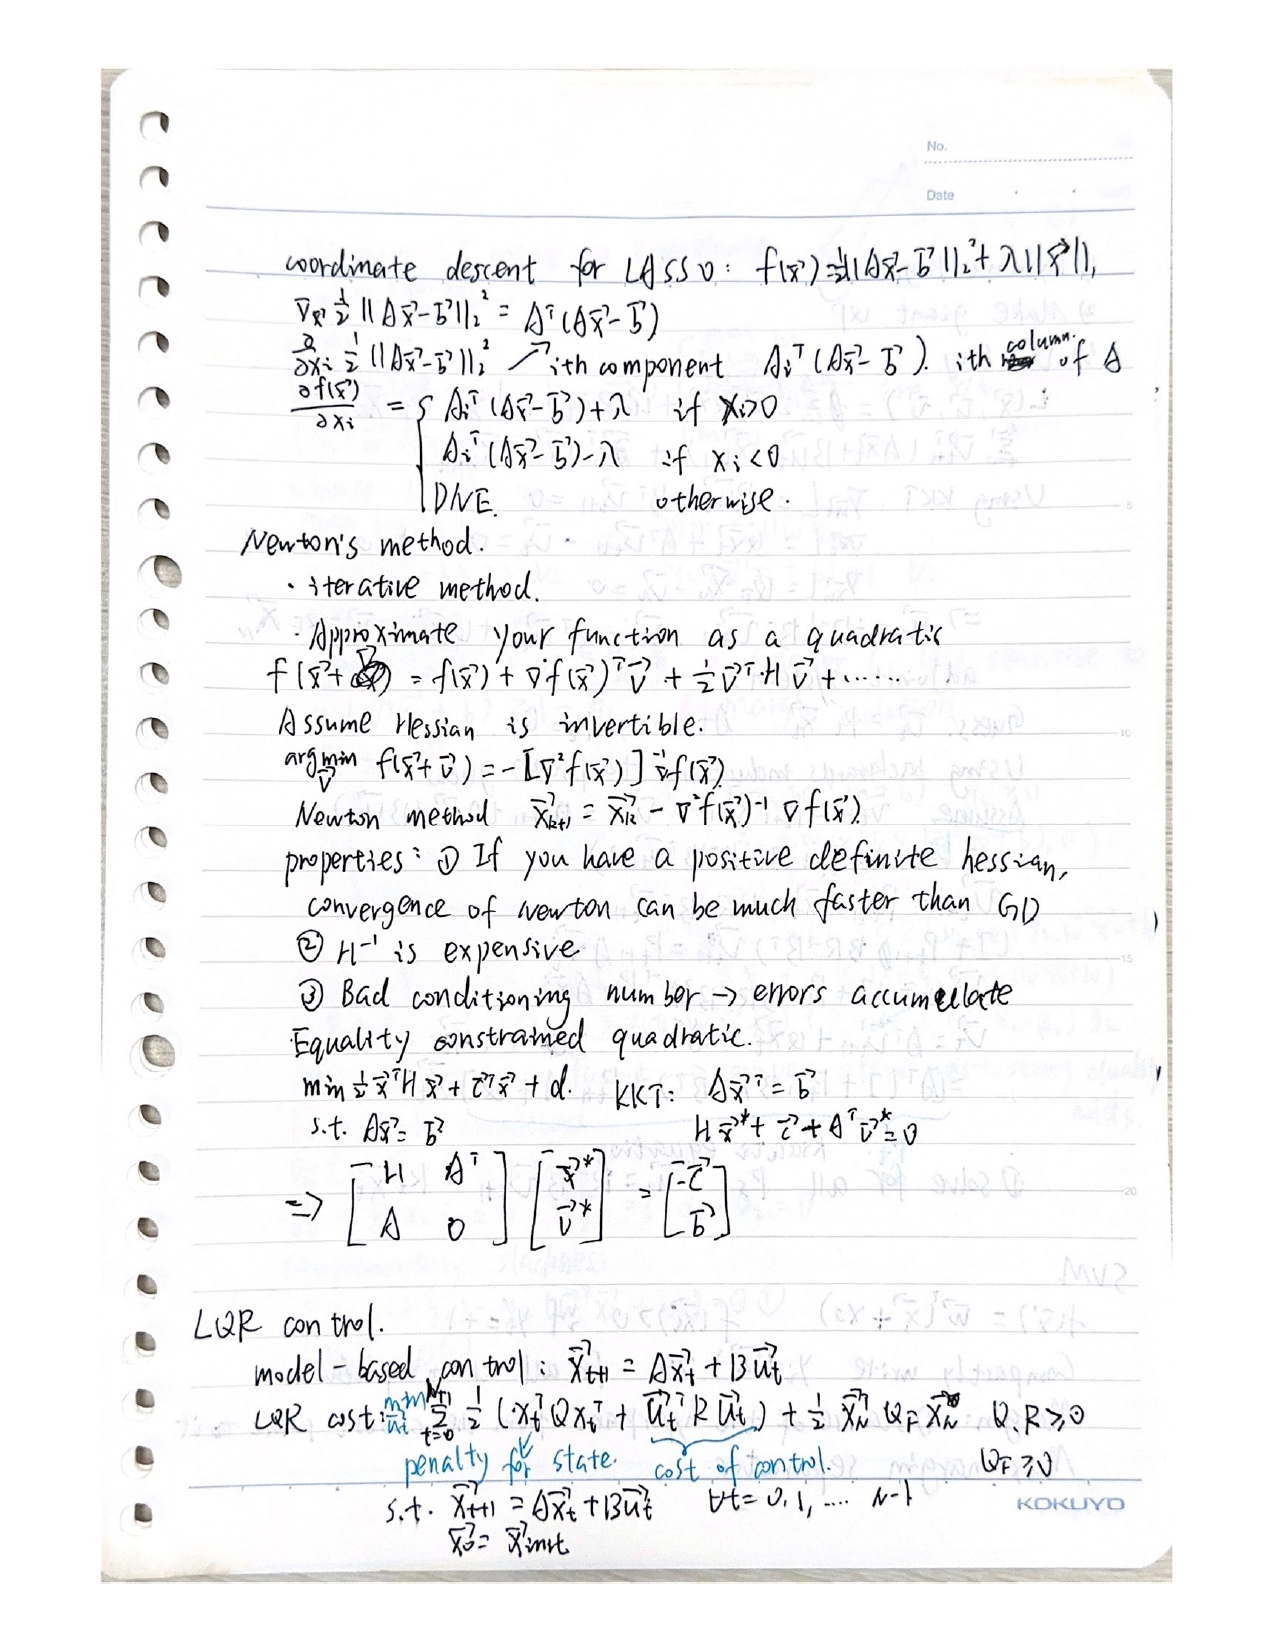 No.
Date
coordinate descent for LASSO: f(x⃗)=½||Ax⃗-b⃗||₂²+λ||x⃗||₁
∇x⃗ ½||Ax⃗-b⃗||₂² = Aᵀ(Ax⃗-b⃗)
∂/∂xᵢ ½||Ax⃗-b⃗||₂² ↗ ith component Aᵢᵀ(Ax⃗-b⃗). ith column of A
∂f(x⃗)/∂xᵢ = { Aᵢᵀ(Ax⃗-b⃗)+λ if xᵢ>0
Aᵢᵀ(Ax⃗-b⃗)-λ if xᵢ<0
DNE. otherwise.
Newton's method.
· iterative method.
· Approximate your function as a quadratic
f(x⃗+v⃗) = f(x⃗)+∇f(x⃗)ᵀv⃗ + ½v⃗ᵀ·Hv⃗+......
Assume Hessian is invertible.
argmin v⃗ f(x⃗+v⃗) = -[∇²f(x⃗)]⁻¹∇f(x⃗)
Newton method x⃗ₖ₊₁ = x⃗ₖ - ∇²f(x⃗)⁻¹ ∇f(x⃗).
properties: ① If you have a positive definite hessian,
convergence of newton can be much faster than GD
② H⁻¹ is expensive
③ Bad conditioning number → errors accumulate
Equality constrained quadratic.
min ½x⃗ᵀHx⃗ + c⃗ᵀx⃗ + d. KKT: Ax⃗ᵀ = b⃗
s.t. Ax⃗ = b⃗ Hx⃗* + c⃗ + Aᵀv⃗* = 0
=> [H Aᵀ; A 0] [x⃗*; v⃗*] = [-c⃗; b⃗]
LQR control.
model-based control: x⃗ₜ₊₁ = Ax⃗ₜ + Bu⃗ₜ
LQR cost: min u⃗ₜ Σₜ₌₀ᴺ⁻¹ ½(xₜᵀQxₜᵀ + u⃗ₜᵀRu⃗ₜ) + ½x⃗ɴᵀQ_F x⃗ɴ Q.R≥0
penalty for state. cost of control. Q_F≥0
s.t. x⃗ₜ₊₁ = Ax⃗ₜ+Bu⃗ₜ ∀t=0,1,.... N-1
x⃗₀ = x⃗init.
KOKUYO